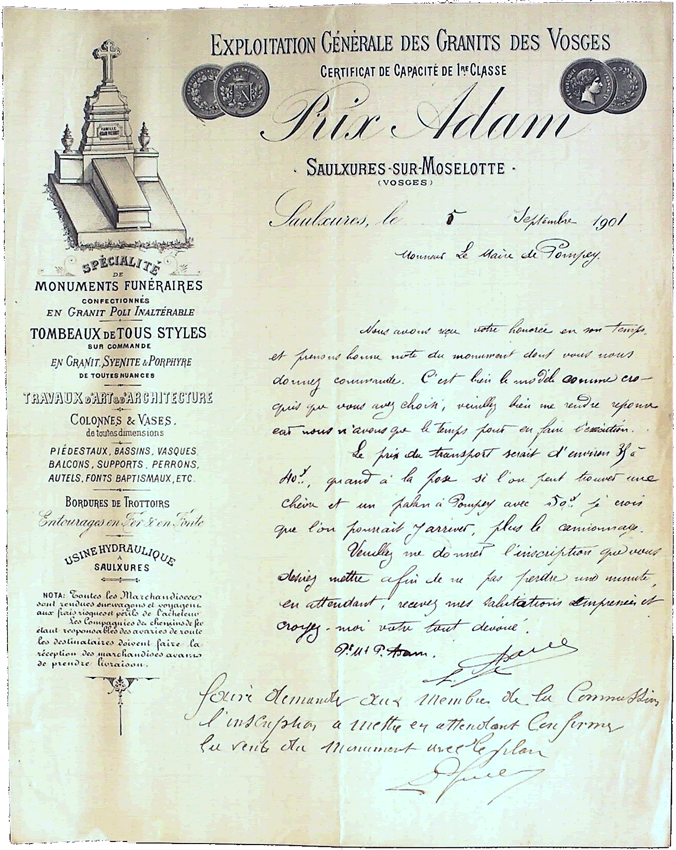 EXPLOITATION GÉNÉRALE DES GRANITS DES VOSGES
CERTIFICAT DE CAPACITÉ DE 1RE CLASSE
Rix Adam
SAULXURES-SUR-MOSELOTTE
(VOSGES)
Saulxures, le 5 Septembre 1901
Monsieur Le Maire de Pompey
FAMILLE
SPÉCIALITÉ
DE
MONUMENTS FUNÉRAIRES
CONFECTIONNÉS
EN GRANIT POLI INALTÉRABLE
TOMBEAUX DE TOUS STYLES
SUR COMMANDE
EN GRANIT, SYENITE & PORPHYRE
DE TOUTES NUANCES
TRAVAUX D'ART & D'ARCHITECTURE
COLONNES & VASES.
de toutes dimensions
PIÉDESTAUX, BASSINS, VASQUES
BALCONS, SUPPORTS, PERRONS,
AUTELS, FONTS BAPTISMAUX, ETC.
BORDURES DE TROTTOIRS
Entourages en Fer & en Fonte
USINE HYDRAULIQUE
A
SAULXURES
NOTA: Toutes les Marchandises
sont rendues sur wagons et voyagent
aux frais risques et périls de l'acheteur
Les Compagnies de chemins de fer
étant responsables des avaries de route
les destinataires doivent faire la
réception des marchandises avant
de prendre livraison.
Nous avons reçu votre honorée en son temps,
et prenons bonne note du monument dont vous nous
donnez commande. C'est bien le modèle comme cro-
quis que vous avez choisi, veuillez bien me rendre reponse
car nous n'avons que le temps pour en faire l'exécution.
Le prix du transport serait d'environ 35 à
40f, quand à la pose si l'on peut trouver une
chèvre et un palan à Pompey avec 50f je crois
que l'on pourrait y arriver, plus le camionnage.
Veuillez me donner l'inscription que vous
désirez mettre afin de ne pas perdre une minute,
en attendant, recevez mes salutations empressées et
croyez-moi votre tout dévoué.
Adam.
faire demander aux Membres de la Commission
l'inscription a mettre en attendant Confirmer
la vente du Monument avec le plan